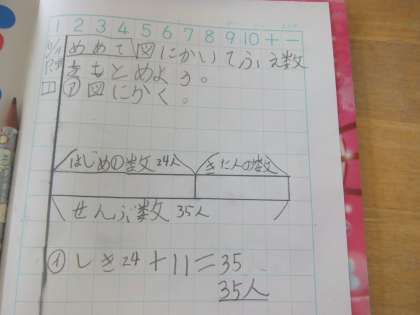 1 2 3 4 5 6 7 8 9 10 + −
めあて 図にかいてぶん数
をもとめよう。
1 ア 図にかく。
はじめの数 24人 きた人の数
ぜんぶ数 35人
イ しき 24+11=35
35人